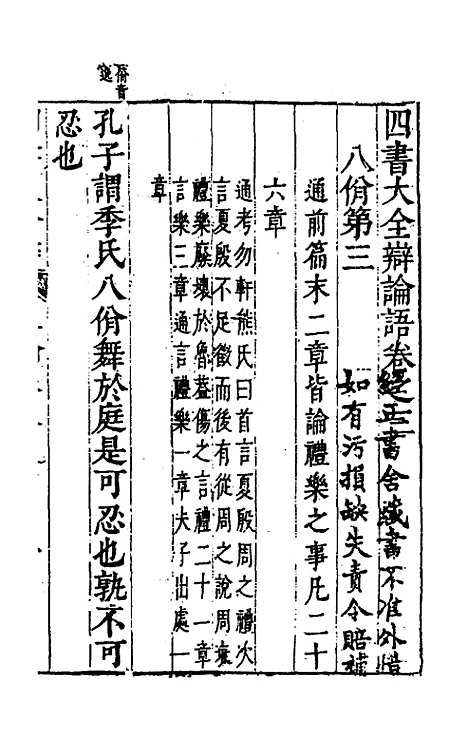 四書大全辯論語卷之二
經正書舍藏書不准外借
如有污損缺失責令賠補
八佾第三
通前篇末二章皆論禮樂之事凡二十
六章
通考勿軒熊氏曰首言夏殷周之禮次
言夏殷不足徵而後有從周之說周衰
禮樂廢壞於魯蓋傷之言禮二十一章
言樂三章通言禮樂一章夫子出處一
章
佾音逸
孔子謂季氏八佾舞於庭是可忍也孰不可
忍也